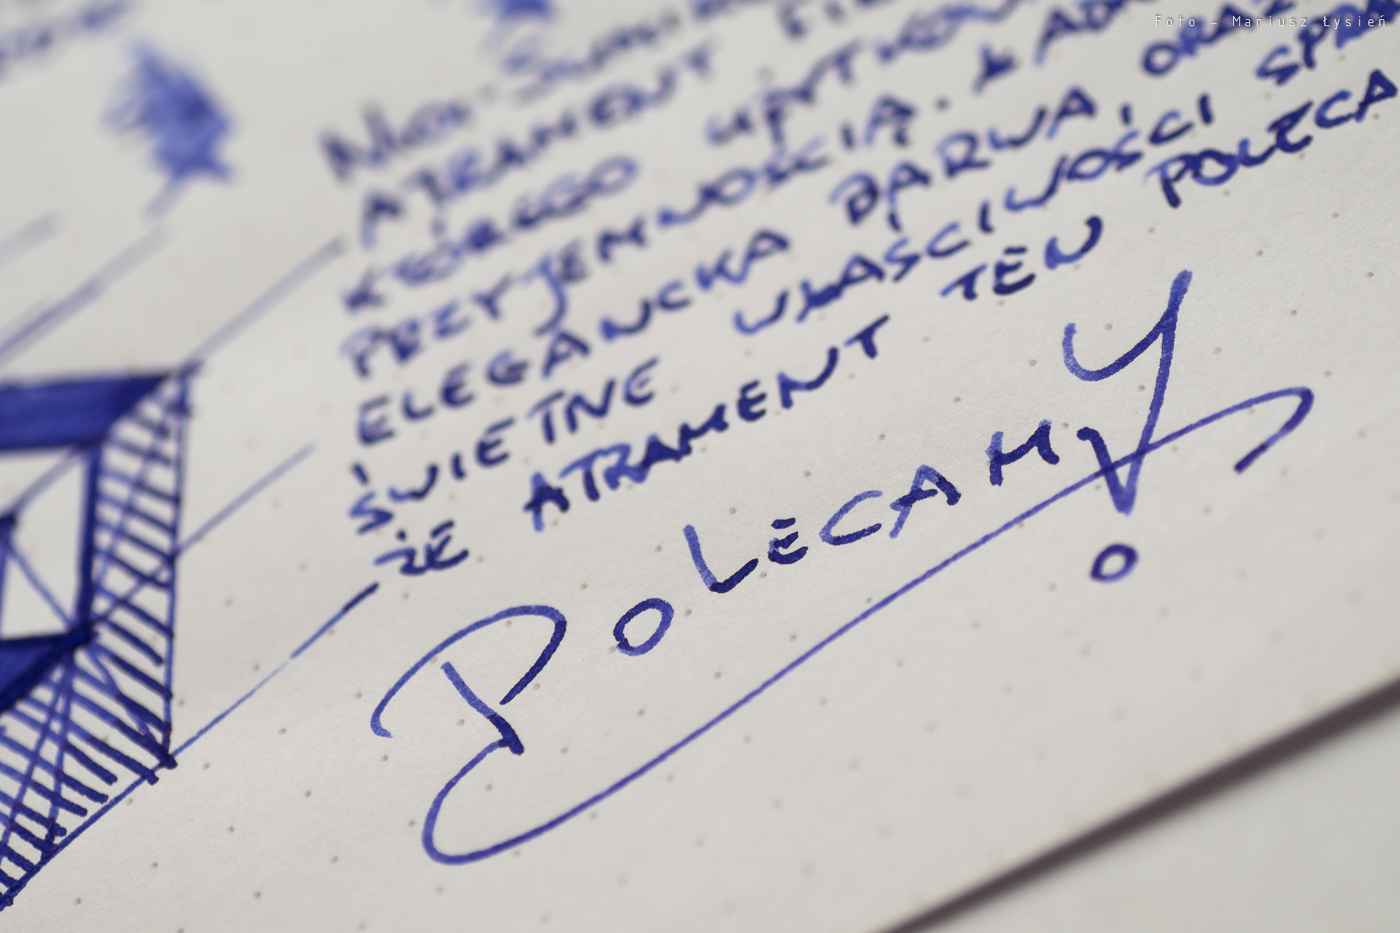 Foto - Mariusz Łysień
ATRAMENT
KTÓREGO UŻYTKOW
PRZYJEMNOŚCIĄ. ŁAD
ELEGANCKA BARWA, ORAZ
ŚWIETNE WŁAŚCIWOŚCI SPRA
ŻE ATRAMENT TEN POLECA
POLECAMY!